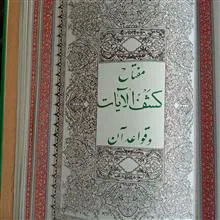 مفتاح
کشف الآیات
و قواعد آن